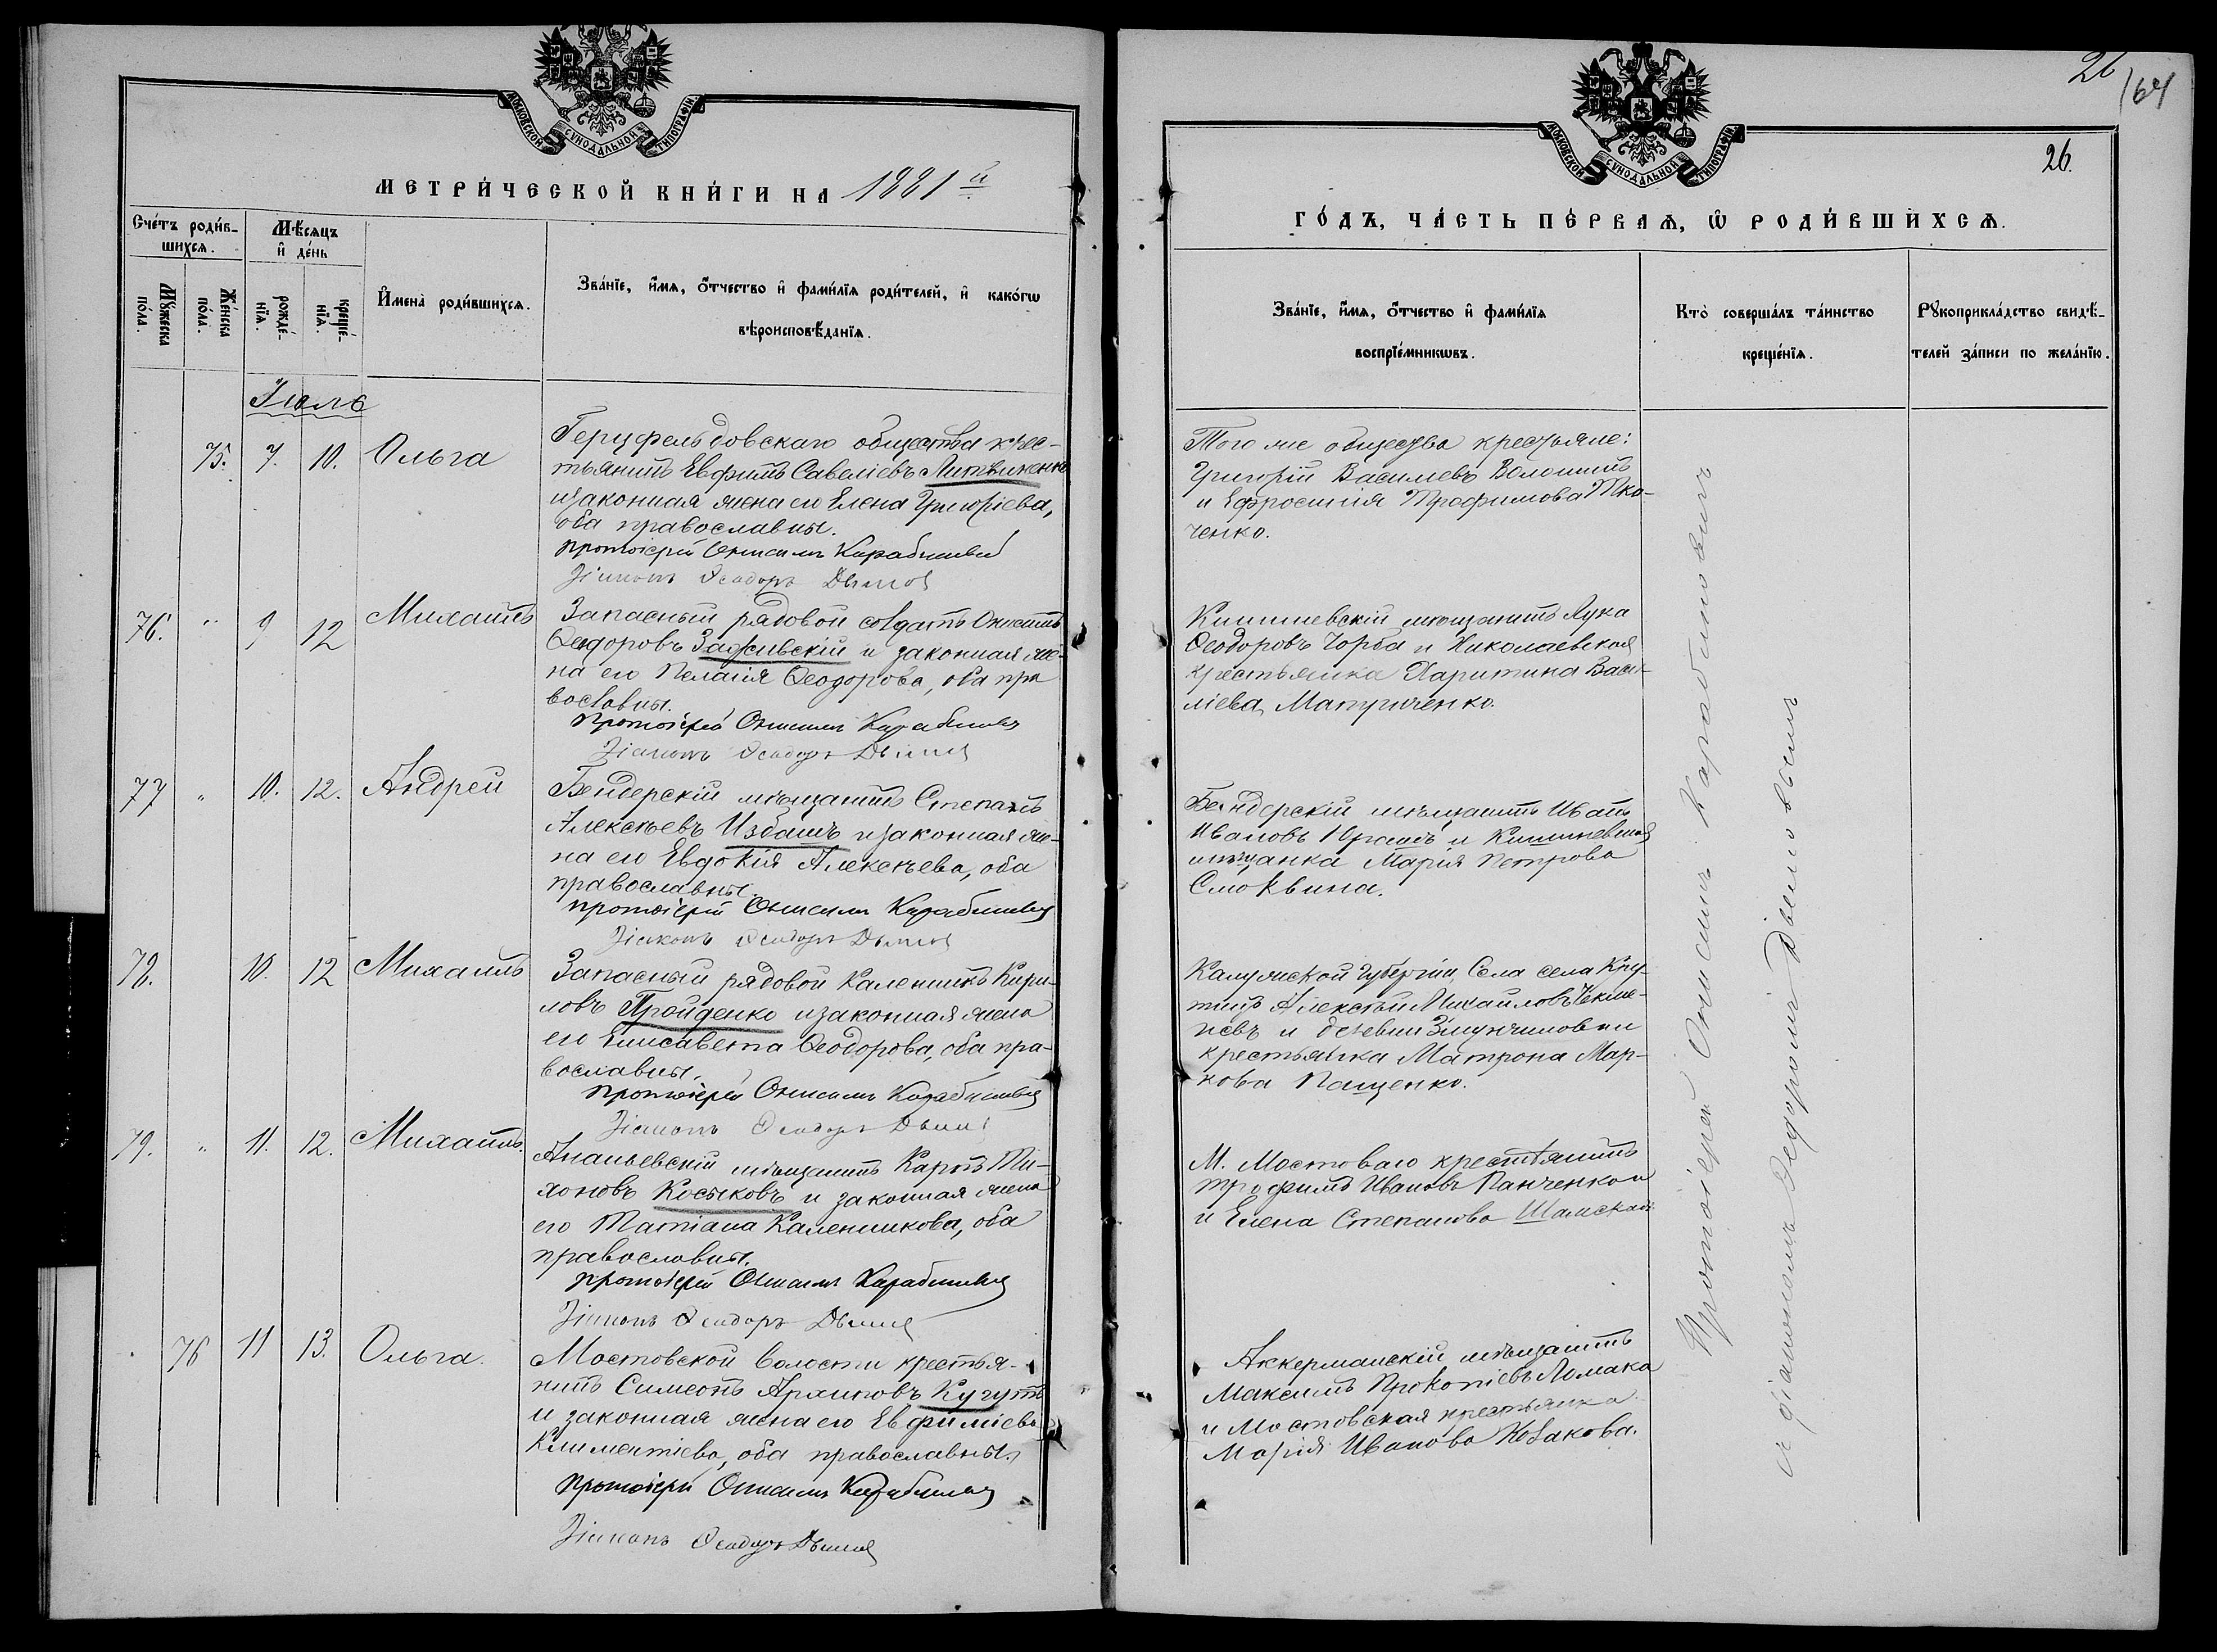 МОСКОВСКОЙ СѴНОДАЛЬНОЙ ТИПОГРАФІИ
МЕТРИ́ЧЕСКОЙ КНИ́ГИ НА 1881й
Сче́тъ роди́в-
шихсѧ.
Мѣ́сѧцъ
и҆ де́нь
Мꙋ́жеска
по́ла.
Же́нска
по́ла.
рожде́-
нїѧ.
креще́-
нїѧ.
И҆мена̀ роди́вшихсѧ.
Зва́нїе, и҆́мѧ, ѻ҆́тчество и҆ фами́лїѧ роди́телей, и҆ како́гѡ
вѣроисповѣ́данїѧ.
Іюль
75. 7. 10. Ольга
Герцфельдовскаго общества крес-
тьянинъ Евфимъ Савеліевъ Литвиненко
и законная жена его Елена Григоріева,
оба православны.
Протоіерей Онисимъ Карабиневичъ
Діаконъ Ѳеодоръ Дымов
76. " 9 12 Михаилъ
Запасный рядовой солдатъ
Ѳеодоровъ и законная же-
на его Пелагія Ѳеодорова, оба пра
вославны.
Протоіерей Онисимъ Карабиневичъ
Діаконъ Ѳеодоръ Дымов
77 " 10. 12. Андрей
Бендерскій мѣщанинъ Степанъ
Алексѣевъ Избашъ и законная же-
на его Евдокія Алексѣева, оба
православны.
Протоіерей Онисимъ Карабиневичъ
Діаконъ Ѳеодоръ Дымов
78. 10. 12 Михаилъ
Запасный рядовой Каленикъ Кири-
ловъ Пройденко и законная жена
его Елисавета Ѳеодорова, оба пра-
вославны.
Протоіерей Онисимъ Карабиневичъ
Діаконъ Ѳеодоръ Дымов
79. " 11. 12. Михаилъ.
Ананьевскій мѣщанинъ Карпъ Ти-
хоновъ Косяковъ и законная жена
его Татіана Каленикова, оба
православны.
Протоіерей Онисимъ Карабиневичъ
Діаконъ Ѳеодоръ Дымов
76 11 13. Ольга.
Мостовской волости крестья-
нинъ Симеонъ Архиповъ Кугутъ
и законная жена его
Климентіева, оба православны.
Протоіерей Онисимъ Карабиневичъ
Діаконъ Ѳеодоръ Дымов
26
164
26.
МОСКОВСКОЙ СѴНОДАЛЬНОЙ ТИПОГРАФІИ
ГО́ДЪ, ЧА́СТЬ ПЕ́РВАѦ, Ѡ҆ РОДИ́ВШИХСѦ.
Зва́нїе, и҆́мѧ, ѻ҆́тчество и҆ фами́лїѧ
воспрїе́мникѡвъ.
Кто̀ соверша́лъ та́инство
креще́нїѧ.
Рꙋкоприкла́дство свидѣ́-
телей за́писи по жела́нїю.
Того же общества крестьяне:
Григорій Василіевъ Волошинъ
и Ефросинія Трофимова Тка-
ченко.
Кишиневскій мѣщанинъ Лука
Ѳеодоровъ Чорба и Николаевская
крестьянка Харитина Васи-
ліева
Бендерскій мѣщанинъ Иванъ
Ивановъ и Кишиневская
мѣщанка Марія Петрова
Смоквина.
Калужской губерніи, Села села Кру-
тицъ Алексѣй Михайловъ
и
крестьянка Матрона Мар-
кова Пащенко.
М. Мостоваго крестьянинъ
Трофимъ Ивановъ Панченко и
и Елена Степанова Шамская
Аккерманскій мѣщанинъ
Максимъ Прокопіевъ Ломака
и Мостовская крестьянка
Марія Иванова Козакова.
Протоіерей Онисимъ Карабиневичъ
съ діакономъ Ѳеодоромъ Дымовымъ